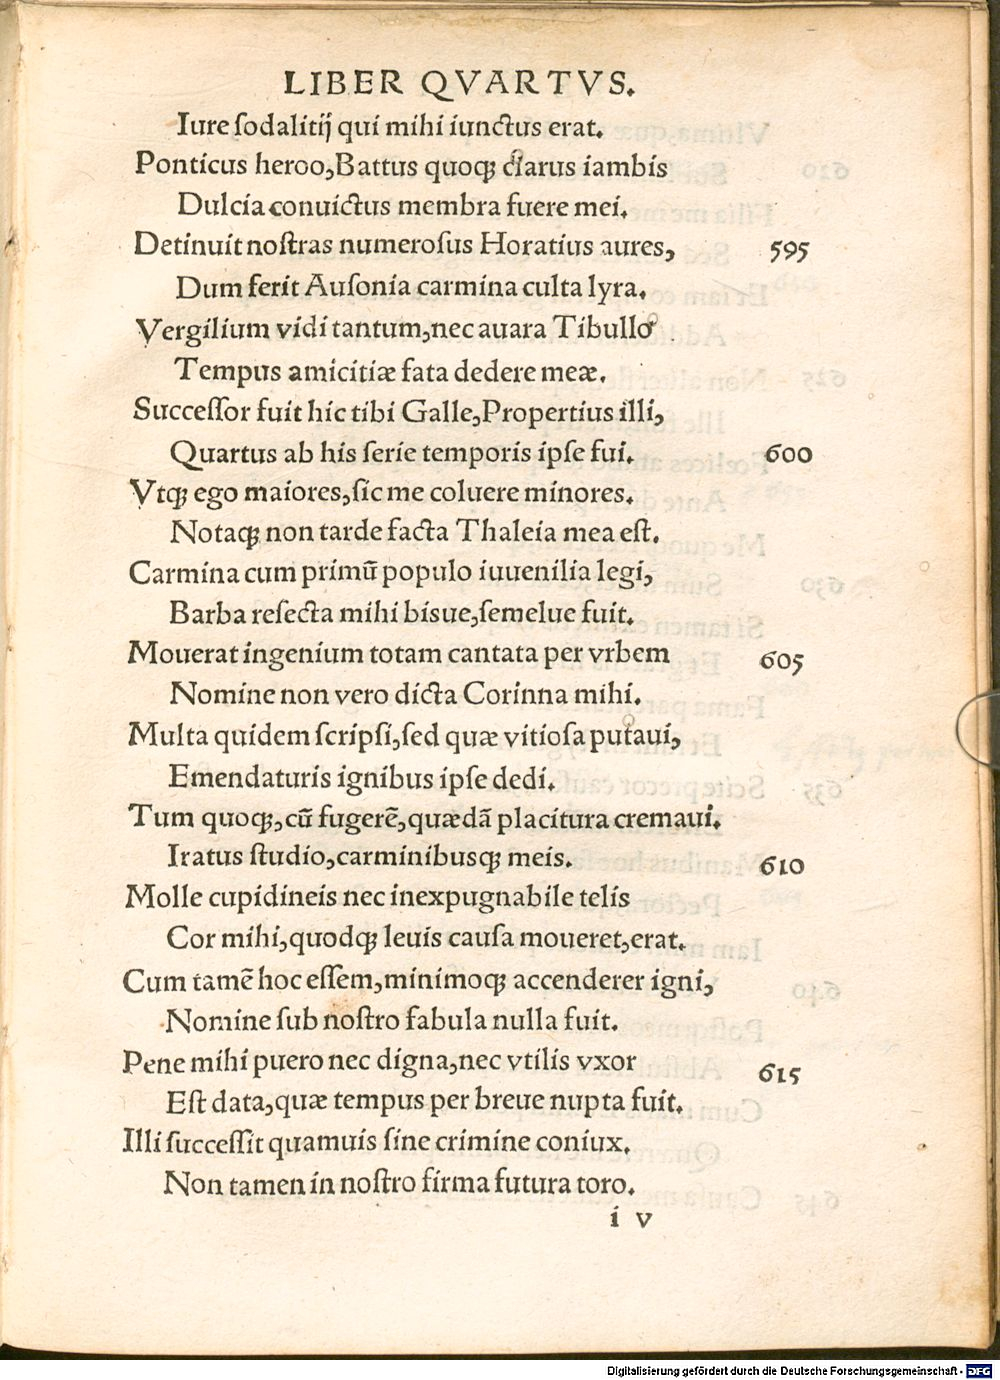 LIBER QVARTVS.
Iure ſodalitij qui mihi iunctus erat.
Ponticus heroo, Battus quoqꝫ clarus iambis
Dulcia conuictus membra fuere mei.
Detinuit noſtras numeroſus Horatius aures, 595
Dum ferit Auſonia carmina culta lyra.
Vergilium vidi tantum, nec auara Tibullo
Tempus amicitiæ fata dedere meæ.
Succeſſor fuit hic tibi Galle, Propertius illi,
Quartus ab his ſerie temporis ipſe fui. 600
Vtqꝫ ego maiores, ſic me coluere minores.
Notaqꝫ non tarde facta Thaleia mea eſt.
Carmina cum primū populo iuuenilia legi,
Barba reſecta mihi bisue, ſemelue fuit.
Mouerat ingenium totam cantata per vrbem 605
Nomine non vero dicta Corinna mihi.
Multa quidem ſcripſi, ſed quæ vitioſa putaui,
Emendaturis ignibus ipſe dedi.
Tum quoqꝫ, cū fugerē, quædā placitura cremaui.
Iratus ſtudio, carminibusqꝫ meis. 610
Molle cupidineis nec inexpugnabile telis
Cor mihi, quodqꝫ leuis cauſa moueret, erat.
Cum tamē hoc eſſem, minimoqꝫ accenderer igni,
Nomine ſub noſtro fabula nulla fuit.
Pene mihi puero nec digna, nec vtilis vxor 615
Eſt data, quæ tempus per breue nupta fuit.
Illi ſucceſſit quamuis ſine crimine coniux.
Non tamen in noſtro firma futura toro.
i v
Digitalisierung gefördert durch die Deutsche Forschungsgemeinschaft - DFG